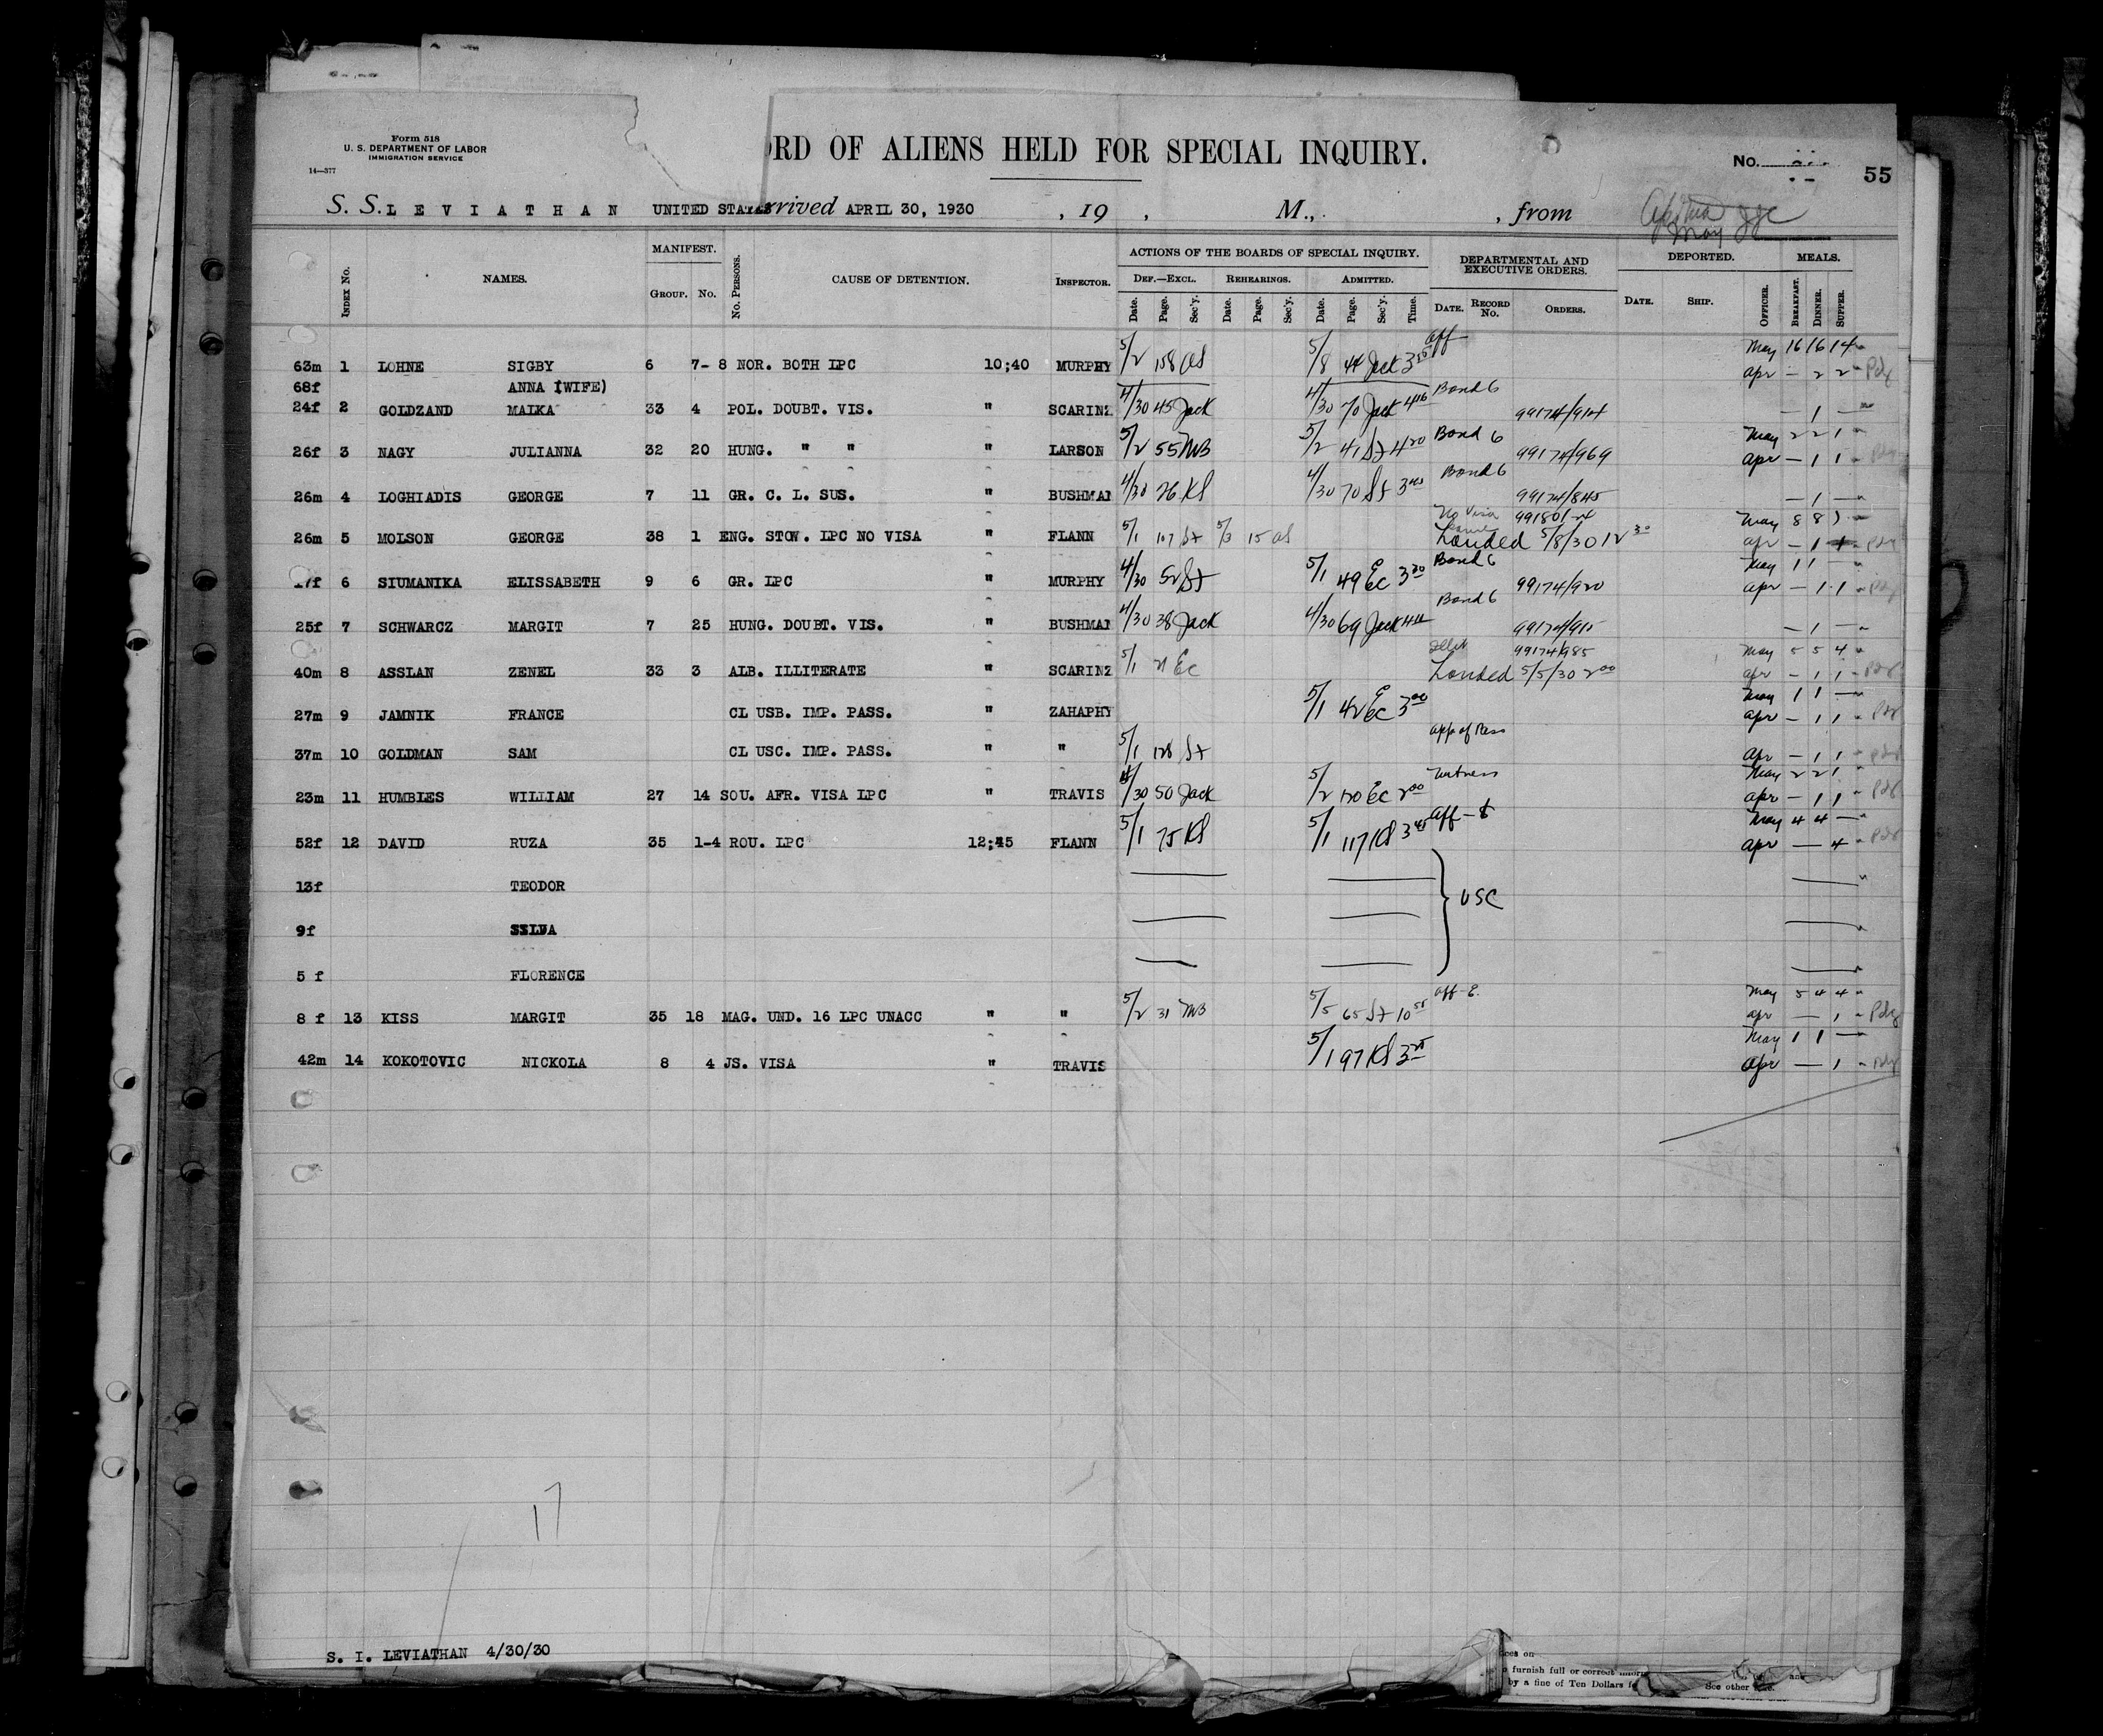 Form 518
U. S. DEPARTMENT OF LABOR
IMMIGRATION SERVICE
14—377
ORD OF ALIENS HELD FOR SPECIAL INQUIRY.
No.
55
S. S. LEVIATHAN UNITED STATES arrived APRIL 30, 1930 , 19 , M., , from
MANIFEST. ACTIONS OF THE BOARDS OF SPECIAL INQUIRY. DEPARTMENTAL AND EXECUTIVE ORDERS. DEPORTED. MEALS.
INDEX No. NAMES. GROUP. No. No. PERSONS. CAUSE OF DETENTION. INSPECTOR. DEF.—EXCL. REHEARINGS. ADMITTED.
Date. Page. Sec'y. Date. Page. Sec'y. Date. Page. Sec'y. Time. DATE. RECORD No. ORDERS. DATE. SHIP. OFFICER. BREAKFAST. DINNER. SUPPER.
63m 1 LOHNE SIGBY 6 7-8 NOR. BOTH LPC 10;40 MURPHY 5/2 158 5/8 44 Jack Aff May 16 16 14
68f ANNA (WIFE) Apr - 2 2
24f 2 GOLDZAND MALKA 33 4 POL. DOUBT. VIS. " SCARINZ 4/30 45 Jack 4/30 70 Jack 4 16 Bond 6 99174/914 — 1 —
26f 3 NAGY JULIANNA 32 20 HUNG. " " " LARSON 5/2 55 MB 5/2 41 St 4 20 Bond 6 99174/969 May 2 2 1
Apr - 1 1
26m 4 LOGHIADIS GEORGE 7 11 GR. C. L. SUS. " BUSHMAN 4/30 76 KS 4/30 70 St Bond 6 99174/845 — 1 —
26m 5 MOLSON GEORGE 38 1 ENG. STOW. LPC NO VISA " FLANN 5/1 107 St 5/3 15 No Visa 99180/ Landed 5/8/30 12 30 May 8 8
Apr - 1
17f 6 SIUMANIKA ELISSABETH 9 6 GR. LPC " MURPHY 4/30 52 St 5/1 49 EC 3 30 Bond 6 99174/920 May 1 1 —
Apr - 1 1
25f 7 SCHWARCZ MARGIT 7 25 HUNG. DOUBT. VIS. " BUSHMAN 4/30 38 Jack 4/30 69 Jack Bond 6 99174/915 — 1 —
40m 8 ASSLAN ZENEL 33 3 ALB. ILLITERATE " SCARINZ 5/1 21 EC 99174/985 Landed 5/5/30 2 00 May 5 5 4
Apr - 1 1
27m 9 JAMNIK FRANCE CL USB. IMP. PASS. " ZAHAPHY 5/1 42 EC 3 00 May 1 1 —
Apr - 1 1
37m 10 GOLDMAN SAM CL USC. IMP. PASS. " " 5/1 128 St App of Pass Apr - 1 1
23m 11 HUMBLES WILLIAM 27 14 SOU. AFR. VISA LPC " TRAVIS 4/30 50 Jack 5/2 120 EC 2 00 Witness May 2 2 1
Apr - 1 1
52f 12 DAVID RUZA 35 1-4 ROU. LPC 12;45 FLANN 5/1 75 KS 5/1 117 KS 3 45 Aff May 4 4 —
Apr — 4
13f TEODOR
9f SILVA USC
5 f FLORENCE
8 f 13 KISS MARGIT 35 18 MAG. UND. 16 LPC UNACC " " 5/2 31 MB 5/5 65 St 10 55 Aff-E. May 5 4 4
Apr — 1
42m 14 KOKOTOVIC NICKOLA 8 4 JS. VISA " TRAVIS 5/1 97 KS May 1 1 —
Apr — 1
17
S. I. LEVIATHAN 4/30/30
furnish full or correct
by a fine of Ten Dollars
See other